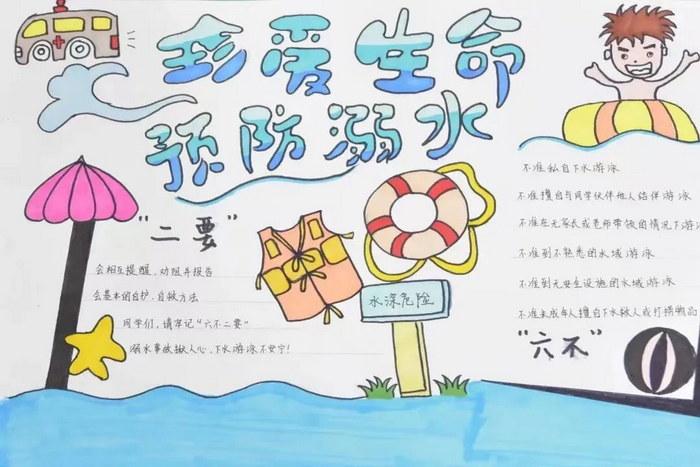 珍爱生命
预防溺水
"二要"
会相互提醒、劝阻并报告
会基本的自护、自救方法
同学们，请牢记"六不二要"
溺水事故揪人心，下水游泳不安宁！
水深危险
不准私自下水游泳
不准擅自与同学伙伴他人结伴游泳
不准在无家长或老师带领的情况下游泳
不准到不熟悉的水域游泳
不准到无安全设施的水域游泳
不准未成年人擅自下水救人或打捞物品
"六不"